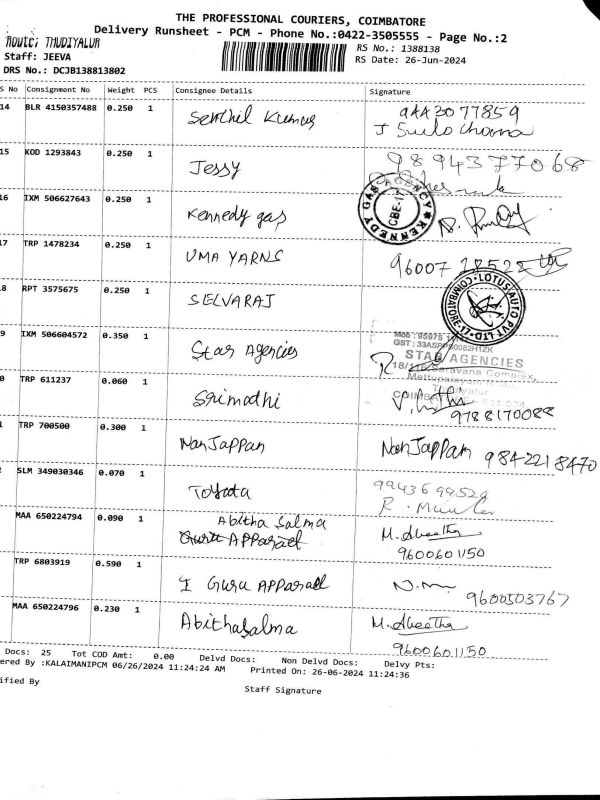 THE PROFESSIONAL COURIERS, COIMBATORE
Delivery Runsheet - PCM - Phone No.:0422-3505555 - Page No.:2
Route: THUDIYALUR
RS No.: 1388138
Staff: JEEVA
RS Date: 26-Jun-2024
DRS No.: DCJB138813802
S No Consignment No Weight PCS Consignee Details Signature
14 BLR 4150357488 0.250 1 Senthil Kumar 9443077859
15 KOD 1293843 0.250 1 Jessy 9894377068
16 IXM 506627643 0.250 1 Kennedy gas
KENNEDY GAS AGENCY CBE-17
17 TRP 1478234 0.250 1 UMA YARNS 96007
8 RPT 3575675 0.250 1 SELVARAJ
LOTUS AUTO PVT LTD COIMBATORE-17
9 IXM 506604572 0.350 1 Star Agencies
STAR AGENCIES
Saravana Complex,
0 TRP 611237 0.060 1 Srimathi
9788170088
1 TRP 700500 0.300 1 NanJappan NanJappan 9842218470
SLM 349030346 0.070 1 Toyota 9943699529
MAA 650224794 0.090 1 Abitha Salma M. Abeetha
9600601150
TRP 6803919 0.590 1 I Guru APParael 9600503767
MAA 650224796 0.230 1 AbithaSalma M. Abeetha
9600601150
Docs: 25 Tot COD Amt: 0.00 Delvd Docs: Non Delvd Docs: Delvy Pts:
ered By :KALAIMANIPCM 06/26/2024 11:24:24 AM Printed On: 26-06-2024 11:24:36
ified By
Staff Signature